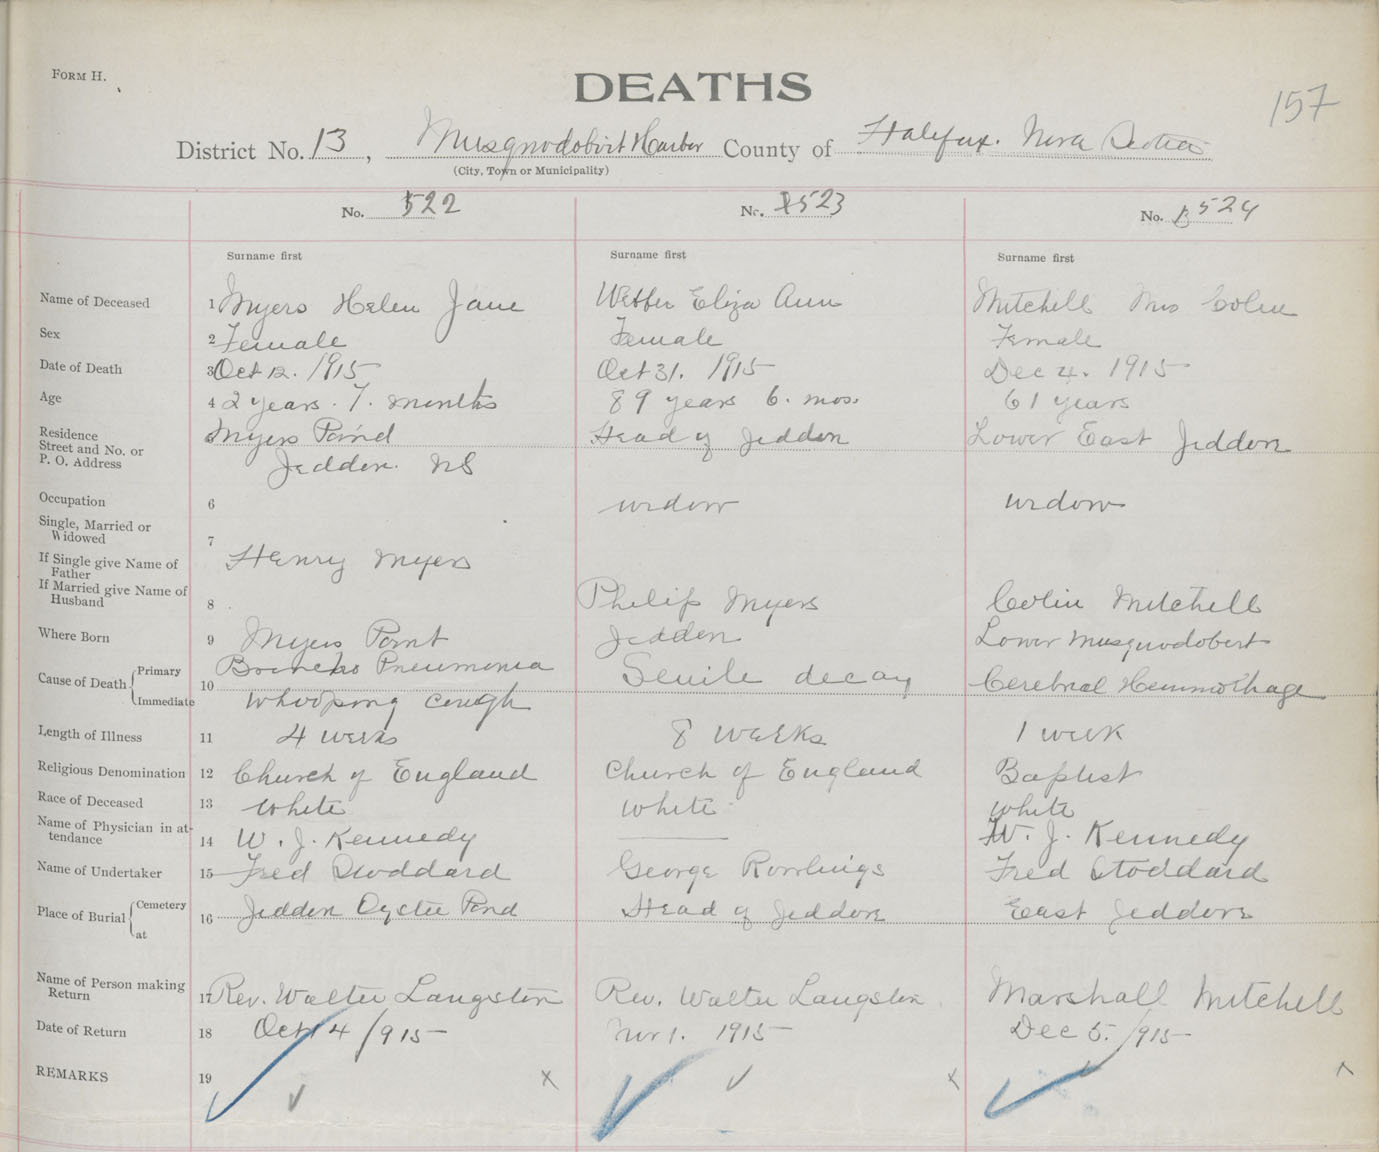 FORM H.
DEATHS
157
District No. 13, Musqnodobvit Harbor County of Halifax. Nova Scotia
(City, Town or Municipality)
No. 522 No. 523 No. 524
Surname first Surname first Surname first
Name of Deceased 1 Myers Helen Jane Webber Eliza Ann Mitchell Mrs Colin
Sex 2 Female Female Female
Date of Death 3 Oct 12. 1915 Oct 31. 1915 Dec 4. 1915
Age 4 2 years. 7. months 89 years 6. mos. 61 years
Residence Myers Point Head of Jeddore Lower East Jeddore
Street and No. or
P. O. Address Jeddore. NS
Occupation 6 widow widow
Single, Married or
Widowed 7
If Single give Name of
Father Henry Myers
If Married give Name of
Husband 8 Philip Myers Colin Mitchell
Where Born 9 Myers Point Jeddore Lower Musquodobert
Cause of Death Primary 10 Broncho Pneumonia Senile decay Cerebral Hemmorhage
Immediate Whooping Cough
Length of Illness 11 4 weeks 8 weeks 1 week
Religious Denomination 12 Church of England Church of England Baptist
Race of Deceased 13 White White White
Name of Physician in at-
tendance 14 W. J. Kennedy W. J. Kennedy
Name of Undertaker 15 Fred Stoddard George Rowlings Fred Stoddard
Place of Burial Cemetery 16 Jeddore Oyster Pond Head of Jeddore East Jeddore
at
Name of Person making
Return 17 Rev. Walter Langston Rev. Walter Langston Marshall Mitchell
Date of Return 18 Oct 14/915 Nov 1. 1915 Dec 5. /915
REMARKS 19